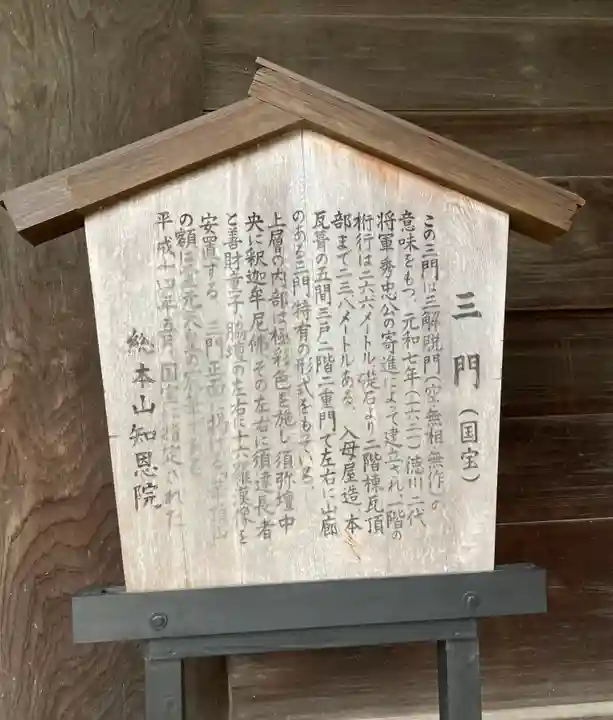 三門（国宝）
この三門は三解脱門（空、無相、無作）の
意味をもつ。元和七年（一六二一）徳川二代
将軍秀忠公の寄進によって建立され、一階の
桁行は二六・六メートル、礎石より二階棟瓦頂
部まで二三・八メートルある。入母屋造、本
瓦葺の五間三戸二階二重門で左右に山廊
のある三門特有の形式をもっている。
上層の内部は極彩色を施し須弥壇中
央に釈迦牟尼佛、その左右に須達長者
と善財童子、脇壇の左右に十六羅漢像を
安置する。三門正面に
の額は霊元
平成十四年五月、国宝に指定された
総本山知恩院